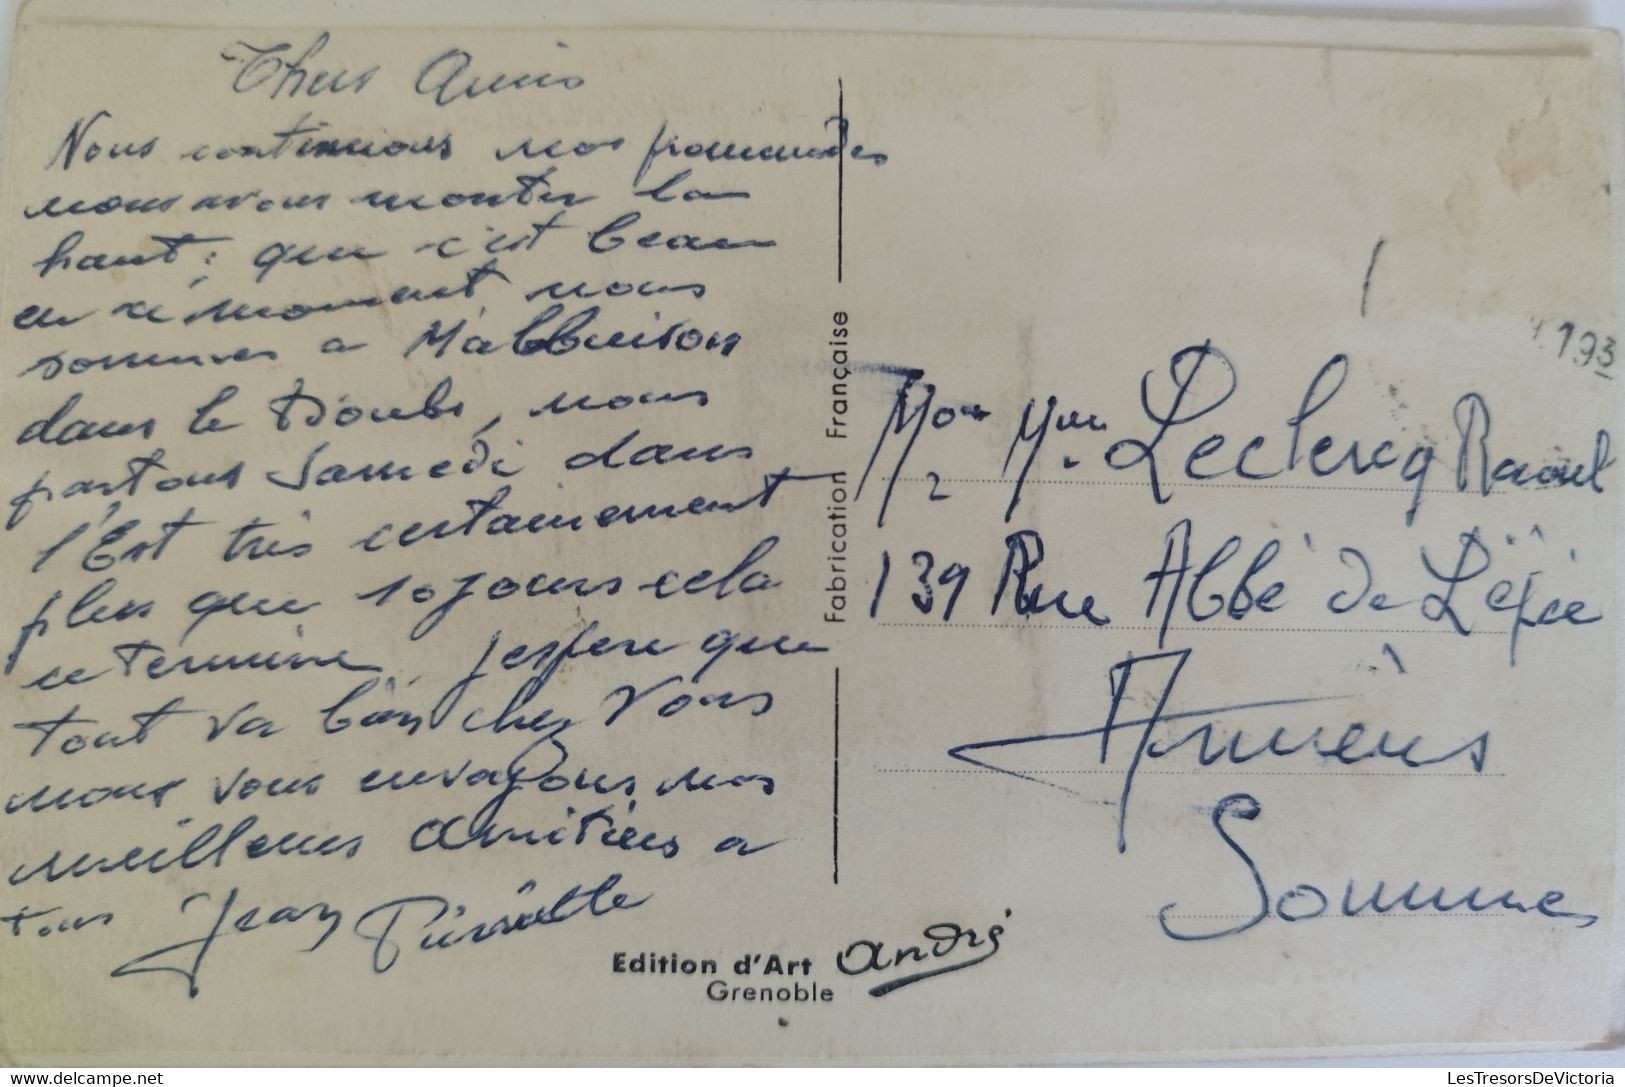 Chers Amis
Nous continuons nos promenades
nous avons monter la
haut; que c'est beau
en ce moment nous
sommes a Malbbuison
dans le Doubs, nous
partons samedi dans
l'Est très certainement
plus que 10 jours cela
ce termine, j'espere que
tout va bien chez Vous
nous vous envoyons nos
meilleures amitiées a
tous Jean Pierrette
Fabrication Française
Edition d'Art André
Grenoble
193
Mon Mme Leclercq Raoul
2
139 Rue Abbé de L'épée
Amiens
Somme
LesTresorsDeVictoria